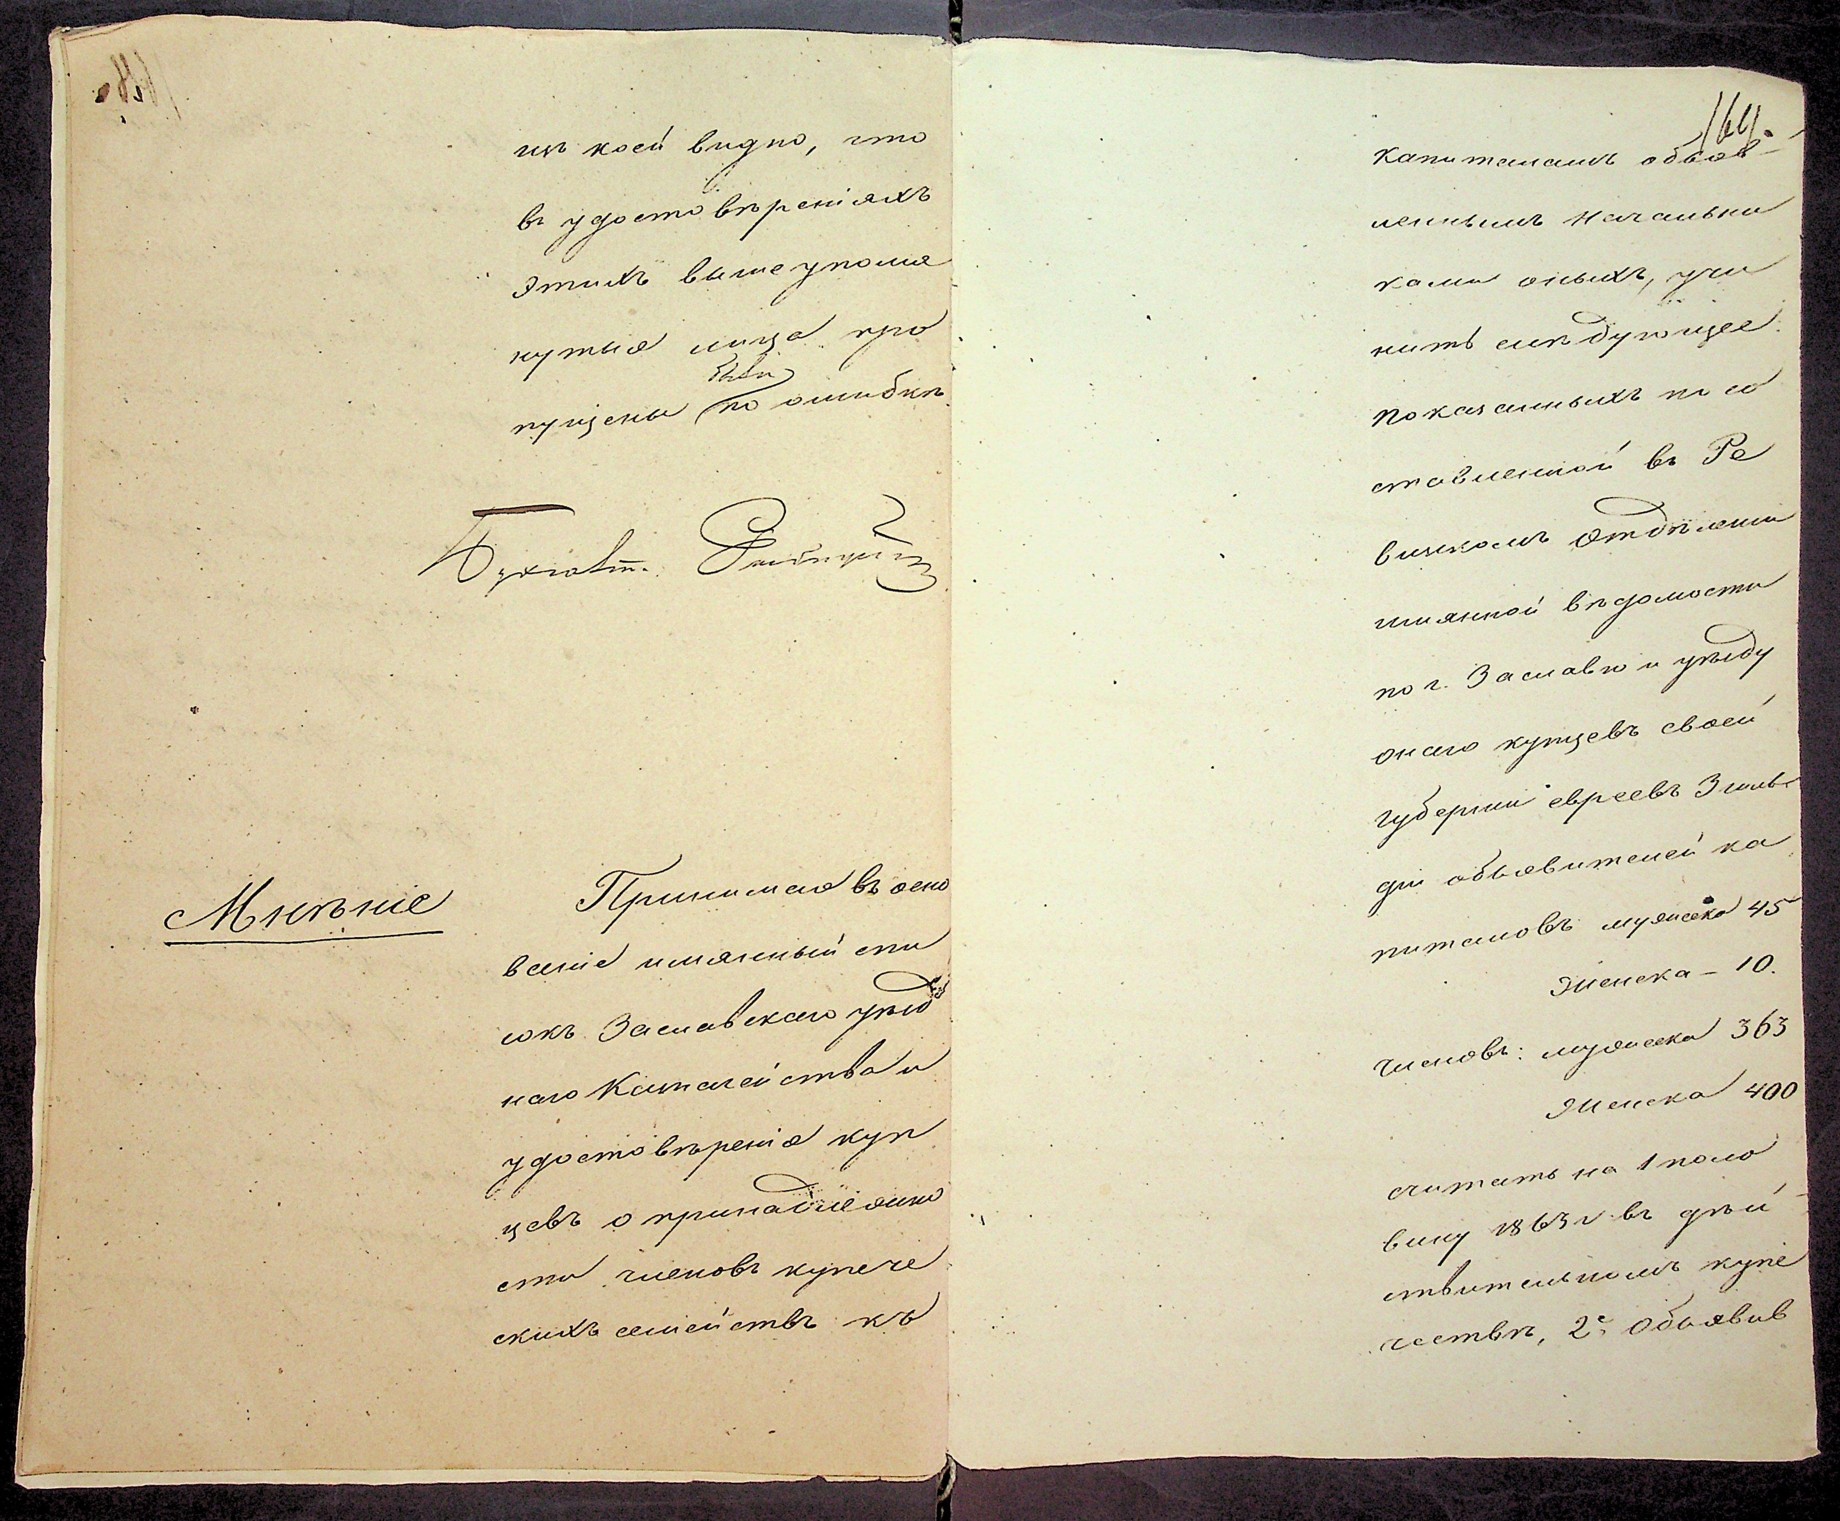 изъ коей видно, что
въ удостовѣреніяхъ
этихъ вышеупомя
нутыя лица про
были
пущены по ошибкѣ
Бухгалт.
Мнѣніе
Принимая въ осно
ваніе имянный спи
сокъ Заславскаго уѣзд
наго Казначейства и
удостовѣренія куп
цевъ о принадлежно
сти членовъ купече
скихъ семействъ къ
164.
капиталамъ объяв-
леннымъ начальни
ками оныхъ, учи
нить слѣдующее
показанныхъ по со
ставленной въ Ре
визскомъ Отдѣленіи
имянной вѣдомости
по г. Заславлю и уѣзду
онаго купцевъ своей
губерніи евреевъ 3 гиль-
діи объявителей ка
питаловъ мужеска 45
женска – 10.
членовъ: мужеска 363
женска 400
считать на 1 поло
вину 1863 г. въ дѣй
ствительномъ купе
чествѣ, 2е, Объявив